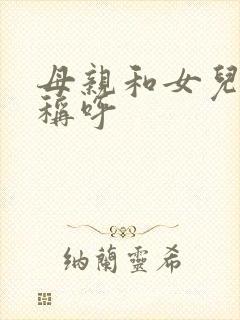 母親和女兒
稱呼
納蘭靈希